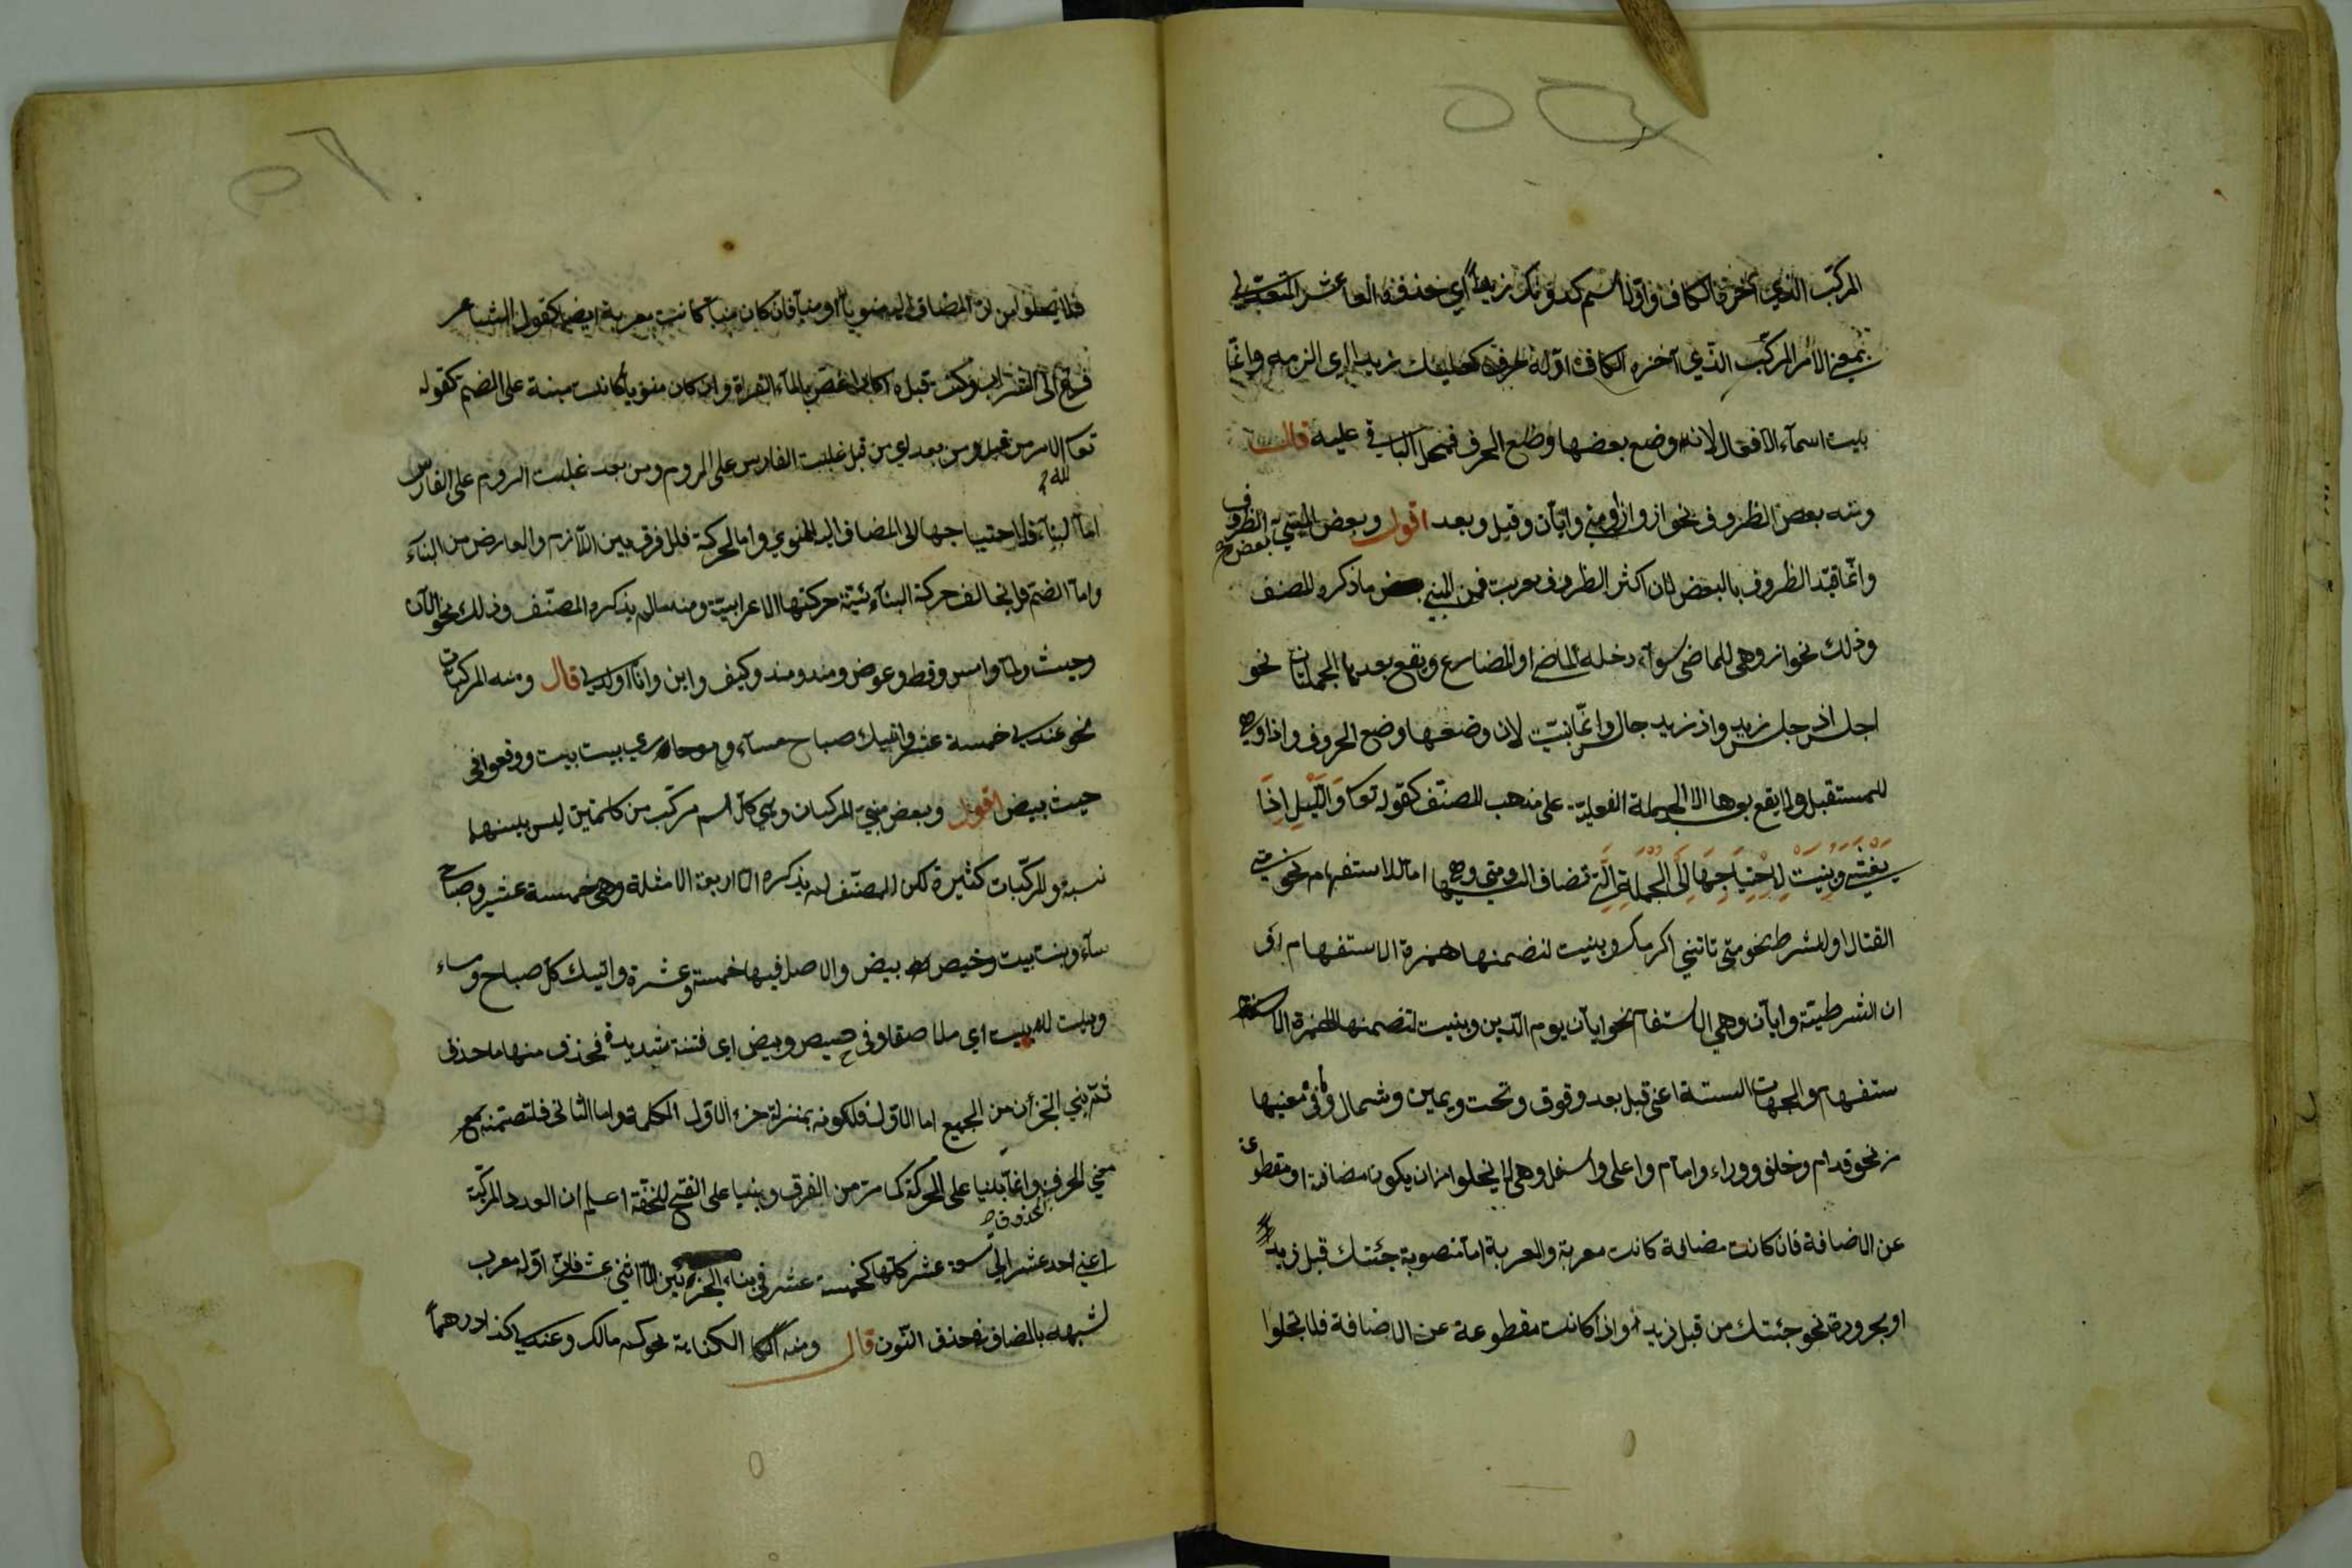 المركب الذي آخره الكاف واوله اسم كدونك زيدا أي خذه
بمعنى الامر المركب الذي آخره الكاف اوله حرف كعليك زيدا اي الزمه وانما
بنيت اسماء الافعال لانه وضع بعضها وضع الحرف فحمل الباقي عليه قال
ومنه بعض الظروف نحو اذ واذا ومتى وايان وقبل وبعد اقول وبعض المبني بعض الظروف
وانما قيد الظروف بالبعض لان اكثر الظروف معربة فمن المبني ما ذكره المصنف
وذلك نحو اذ وهي للماضي سواء دخله الماضي او المضارع ويقع بعدها الجملتان نحو
اجلس اذ جلس زيد واذ زيد جالس وانما بنيت لان وضعها وضع الحروف واذا وهي
للمستقبل ولا يقع بعدها الا الجملة الفعلية على مذهب المصنف كقوله تعا وَاللَّيْلِ اِذَا
يَغْشَى وبنيت لاحتياجها الى الجملة التي تضاف اليه ومتى وهي اما للاستفهام نحو متى
القتال او للشرط نحو متى تاتني اكرمك وبنيت لتضمنها همزة الاستفهام او
ان الشرطية وايان وهي للاستفهام نحو ايان يوم الدين وبنيت لتضمنها الهمزة الا
ستفهام والجهات الستة اعني قبل بعد وفوق وتحت ويمين وشمال وما في معنيها
نحو قدام وخلف ووراء وامام واعلى واسفل وهي لا يخلوا من ان يكون مضافة او مقطوعة
عن الاضافة فان كانت مضافة كانت معربة والعربة اما منصوبة جئتك قبل زيد
او مجرورة نحو جئتك من قبل زيد واذا كانت مقطوعة عن الاضافة فلا يخلوا
فلا يخلوا من ان المضاف اليه منويا او منسيا فان كان منسيا كانت معربة ايضا كقول الشاعر
فساغ لى الشراب وكنت قبلا اكاد اغص بالماء الفرات وان كان منويا كانت مبنية على الضم كقوله
تعا لله الامر من قبل ومن بعد اي من قبل غلبت الفارس على الروم ومن بعد غلبت الروم على الفارس
اما البناء فلاحتياجها الى المضاف اليه المنوي واما الحركة فللفرق بين اللازم والعارض من البناء
واما الضم فليخالف حركة البنائية حركتها الاعرابية ومنه ما لم يذكره المصنف وذلك نحو الآن
وحيث ولما وامس وقط وعوض ومذ ومنذ وكيف واين وانا ولدى قال ومنه المركبات
نحو عندي خمسة عشر واتيك صباح مساء وهو جارى بيت بيت ووقعوا فى
حيص بيص اقول وبعض مبني المركبات وهي كل اسم مركب من كلمتين ليس بينهما
نسبة والمركبات كثيرة لكن المصنف لم يذكره الا اربعة الامثلة وهي خمسة عشر وصباح
مساء وبيت بيت وحيص بيص والاصل فيها خمسة وعشرة واتيك كل صباح ومساء
وبيت لبيت اي ملاصقا وفى حيص وبيص اى فتنة شديدة فحذف منها ما حذف
ثم بني الجزءان من الجميع اما الاول فلكونه بمنزلة جزء الاول الكلمة واما الثانى فلتضمنه مع
معنى الحرف المحذوف وانما بنيا على الحركة كما مر من الفرق وبنيا على الفتح للخفة اعلم ان العدد المركبة
اعني احد عشر الى تسعة عشر كلها كخمسة عشر فى بناء الجزئين الا اثني عشر فان اوله معرب
لشبهه بالمضاف فحذف النون قال ومنه الكناية نحو كم مالك وعندي كذا درهما